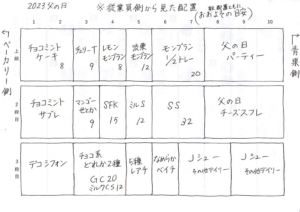 2023父の日
※従業員側から見た配置
(おおよその目安)
1 2 3 4 5 6 7 8 9 10
↑ベーカリー側
青果側↑
上段
チョコミントケーキ 8
チェリーT 9
レモンモンブラン 8
モンブラン 12
モンブラン 1/2トレー 20
父の日パーティー
2段目
チョコミントサブレ
マンゴーせとか 9
SFK 15
ミルS 12
SS 32
父の日チーズスフレ
3段目
デコシフォン
チョコ系どれか2種
GC20
ミルクCS12
5種レアチ
なめらかベイチ
Jシュー
その他デイリー
Jシュー
その他デイリー